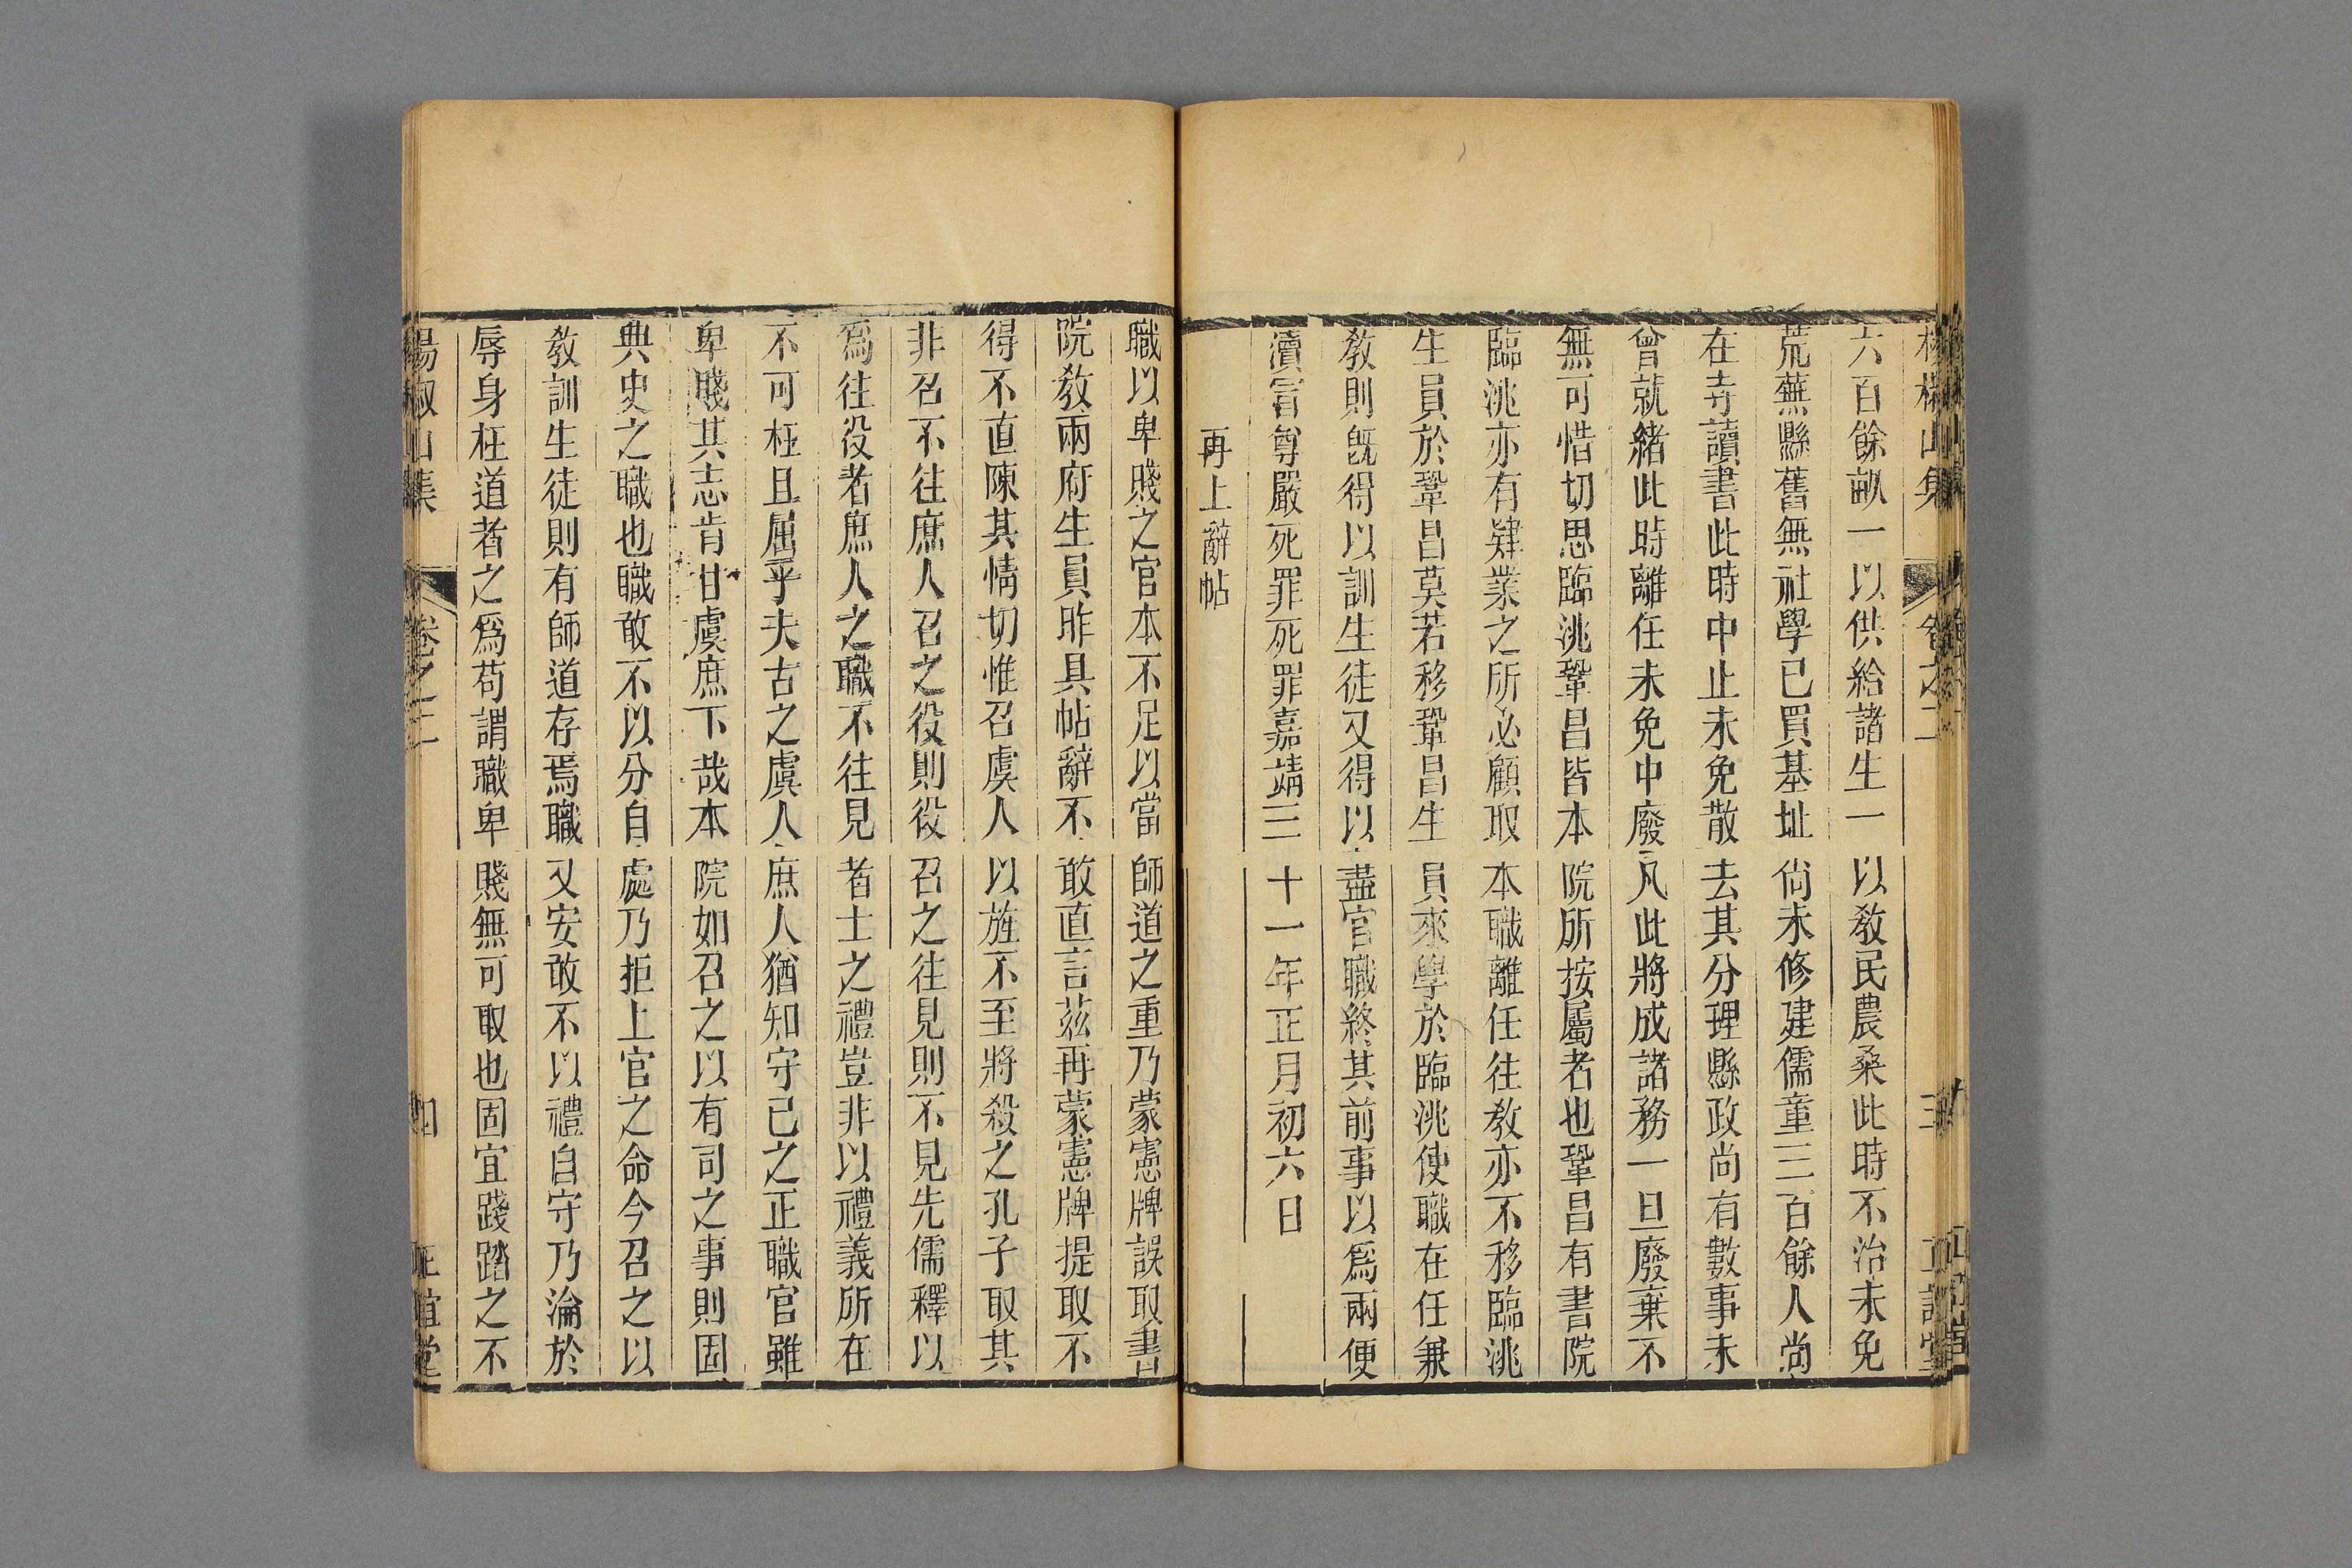 六百餘畝一以供給諸生一以敎民農桑此時不治未免
荒蕪縣舊無社學已買基址尙未修建儒童三百餘人尙
在寺讀書此時中止未免散去其分理縣政尙有數事未
曾就緒此時離任未免中廢凡此將成諸務一旦廢棄不
無可惜切思臨洮鞏昌皆本院所按屬者也鞏昌有書院
臨洮亦有肄業之所必顧取本職離任往敎亦不移臨洮
生員於鞏昌莫若移鞏昌生員來學於臨洮使職在任兼
敎則旣得以訓生徒又得以盡官職終其前事以爲兩便
瀆冒尊嚴死罪死罪嘉靖三十一年正月初六日
再上辭帖
職以卑賤之官本不足以當師道之重乃蒙憲牌誤取書
院敎兩府生員昨具帖辭不敢直言茲再蒙憲牌提取不
得不直陳其情切惟召虞人以旌不至將殺之孔子取其
非召不往庶人召之役則役召之往見則不見先儒釋以
爲往役者庶人之職不往見者士之禮豈非以禮義所在
不可枉且屈乎夫古之虞人庶人猶知守己之正職官雖
卑賤其志肯甘虞庶下哉本院如召之以有司之事則固
典史之職也職敢不以分自處乃拒上官之命今召之以
敎訓生徒則有師道存焉職又安敢不以禮自守乃淪於
辱身枉道者之爲苟謂職卑賤無可取也固宜踐踏之不
楊椒山集 卷之二 四 正誼堂